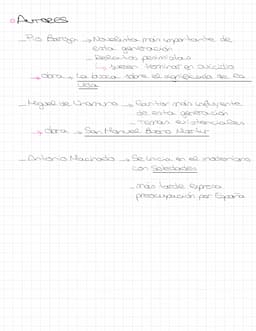 AUTORES
Pío Baroja → Novelista más importante de
esta generación
→ Relatos pesimistas
↳ suelen terminar en suicidio
→ obra → La busca sobre el significado de la
vida
Miguel de Unamuno → Escritor más influyente
de esta generación
→ Temas existenciales
→ obra → San Manuel Bueno Mártir
Antonio Machado → Se inicia en el modernismo
con Soledades
→ más tarde expresa
preocupación por España